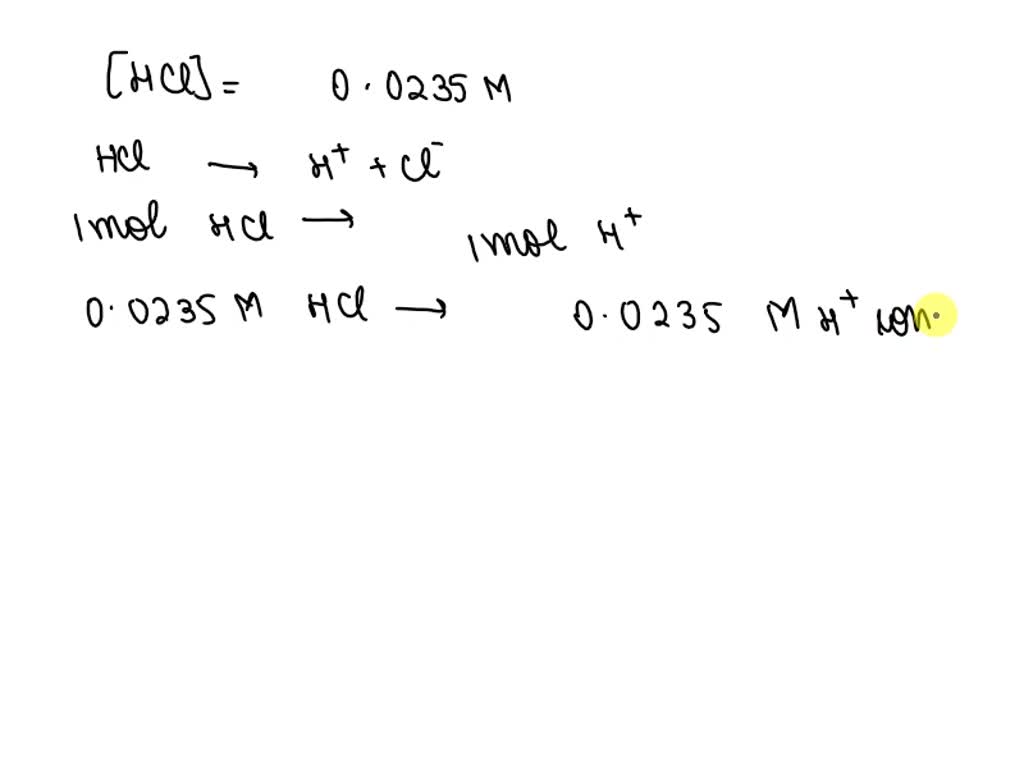 [HCl] = 0.0235 M
HCl → H⁺ + Cl⁻
1mol HCl → 1mol H⁺
0.0235 M HCl → 0.0235 M H⁺ ion.